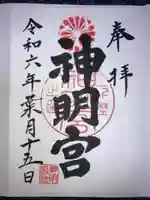 奉拝
神明宮
令和六年葉月十五日